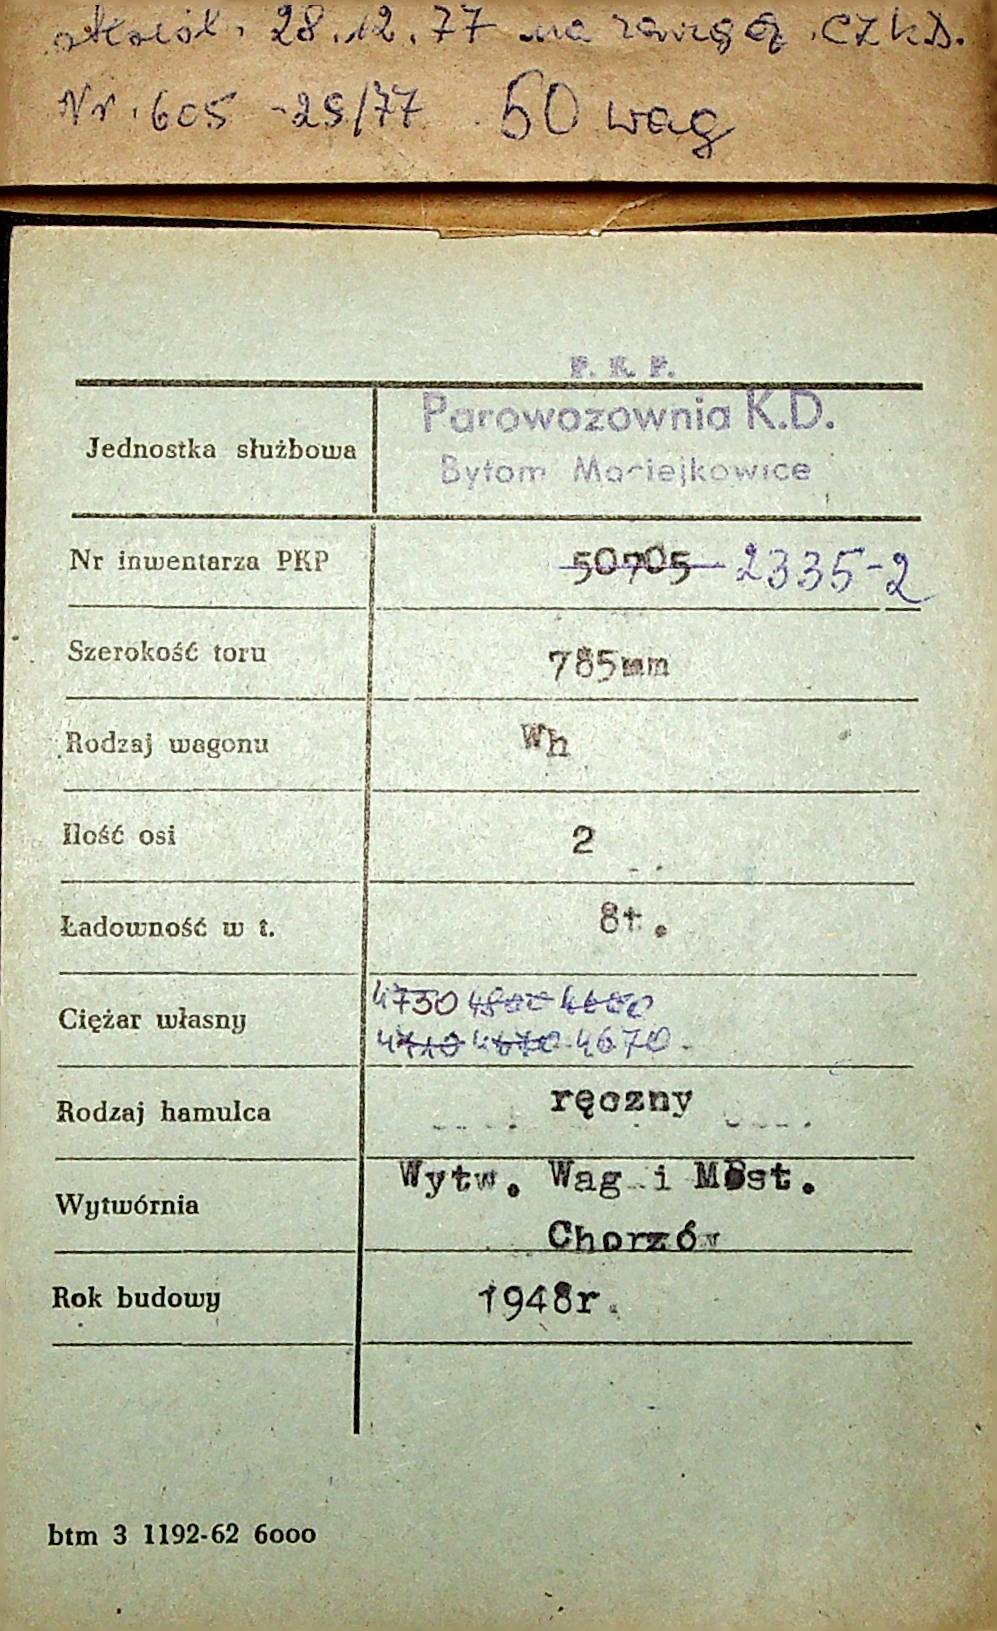 28.12.77 na CZKD.
Nr. 605-29/77 50 wag
P. K. P.
Jednostka służbowa Parowozownia K.D.
Bytom Maciejkowice
Nr inwentarza PKP 50705 2335-2
Szerokość toru 785mm
Rodzaj wagonu Wh
Ilość osi 2
Ładowność w t. 8t.
Ciężar własny 4750 4800 4680
4710 4670 4670
Rodzaj hamulca ręczny
Wytwórnia Wytw. Wag i Most.
Chorzów
Rok budowy 1948r.
btm 3 1192-62 6000